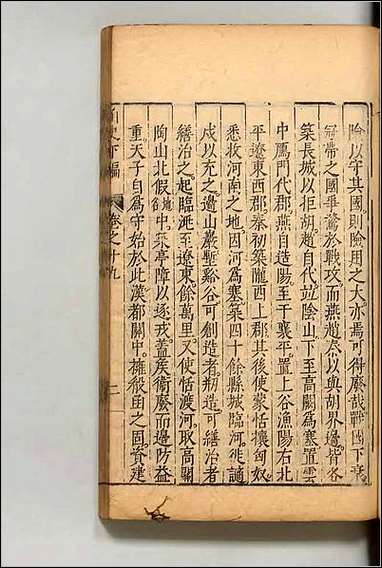 險以守其國則險用之大亦焉可得廢哉戰國下衰
冠帶之國爭驚於戰攻而燕趙秦以與胡界邊皆各
築長城以拒胡趙自代竝陰山下至高闕爲塞置雲
中鴈門代郡燕自造陽至于襄平置上谷漁陽右北
平遼東西郡秦初築隴西上郡其後使蒙恬攘匈奴
悉收河南之地因河爲塞築四十餘縣城臨河徙謫
戍以充之邊山巖塹谿谷可創造者剏造可繕治者
繕治之起臨洮至遼東餘萬里又使恬渡河取高闕
陶山北假地名中築亭障以逐戎蓋疾衛廢而邊防益
重天子自爲守始於此漢都關中擁殽函之固資建
卷之十九
二